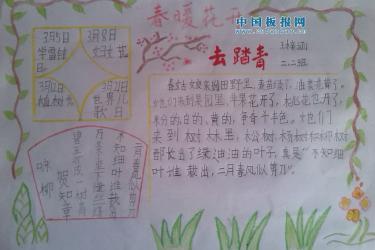 春暖花开
中国板报网
去踏青
二.二班
3月5日
学雷锋
3月8日
妇女节
3月12日
植树节
3月21日
世界儿歌日
咏柳
贺知章
万条垂下绿丝绦
不知细叶谁裁出
二月春风似剪刀
春姑娘来到田野里，麦苗绿了，油菜花黄了。
她们来到果园里，苹果花开了，桃花也开了，
粉的白的、黄的，争奇斗艳。她们
来到树林里，松树、杨树和柳树
都长出了绿油油的叶子，真是“不知细
叶谁裁出，二月春风似剪刀”